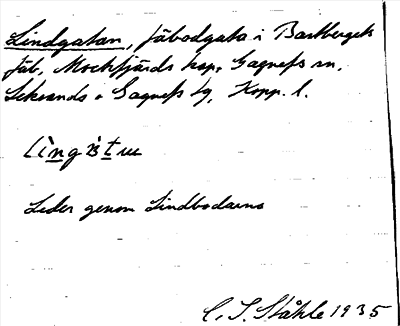 Lindgatan, fäbodgata i Bastbergets
fäb, Mockfjärds kap, Gagnefs sn,
Leksands o Gagnefs tg, Kopp. l.
Leder genom Lindbodarna
C. I. Ståhle 1935